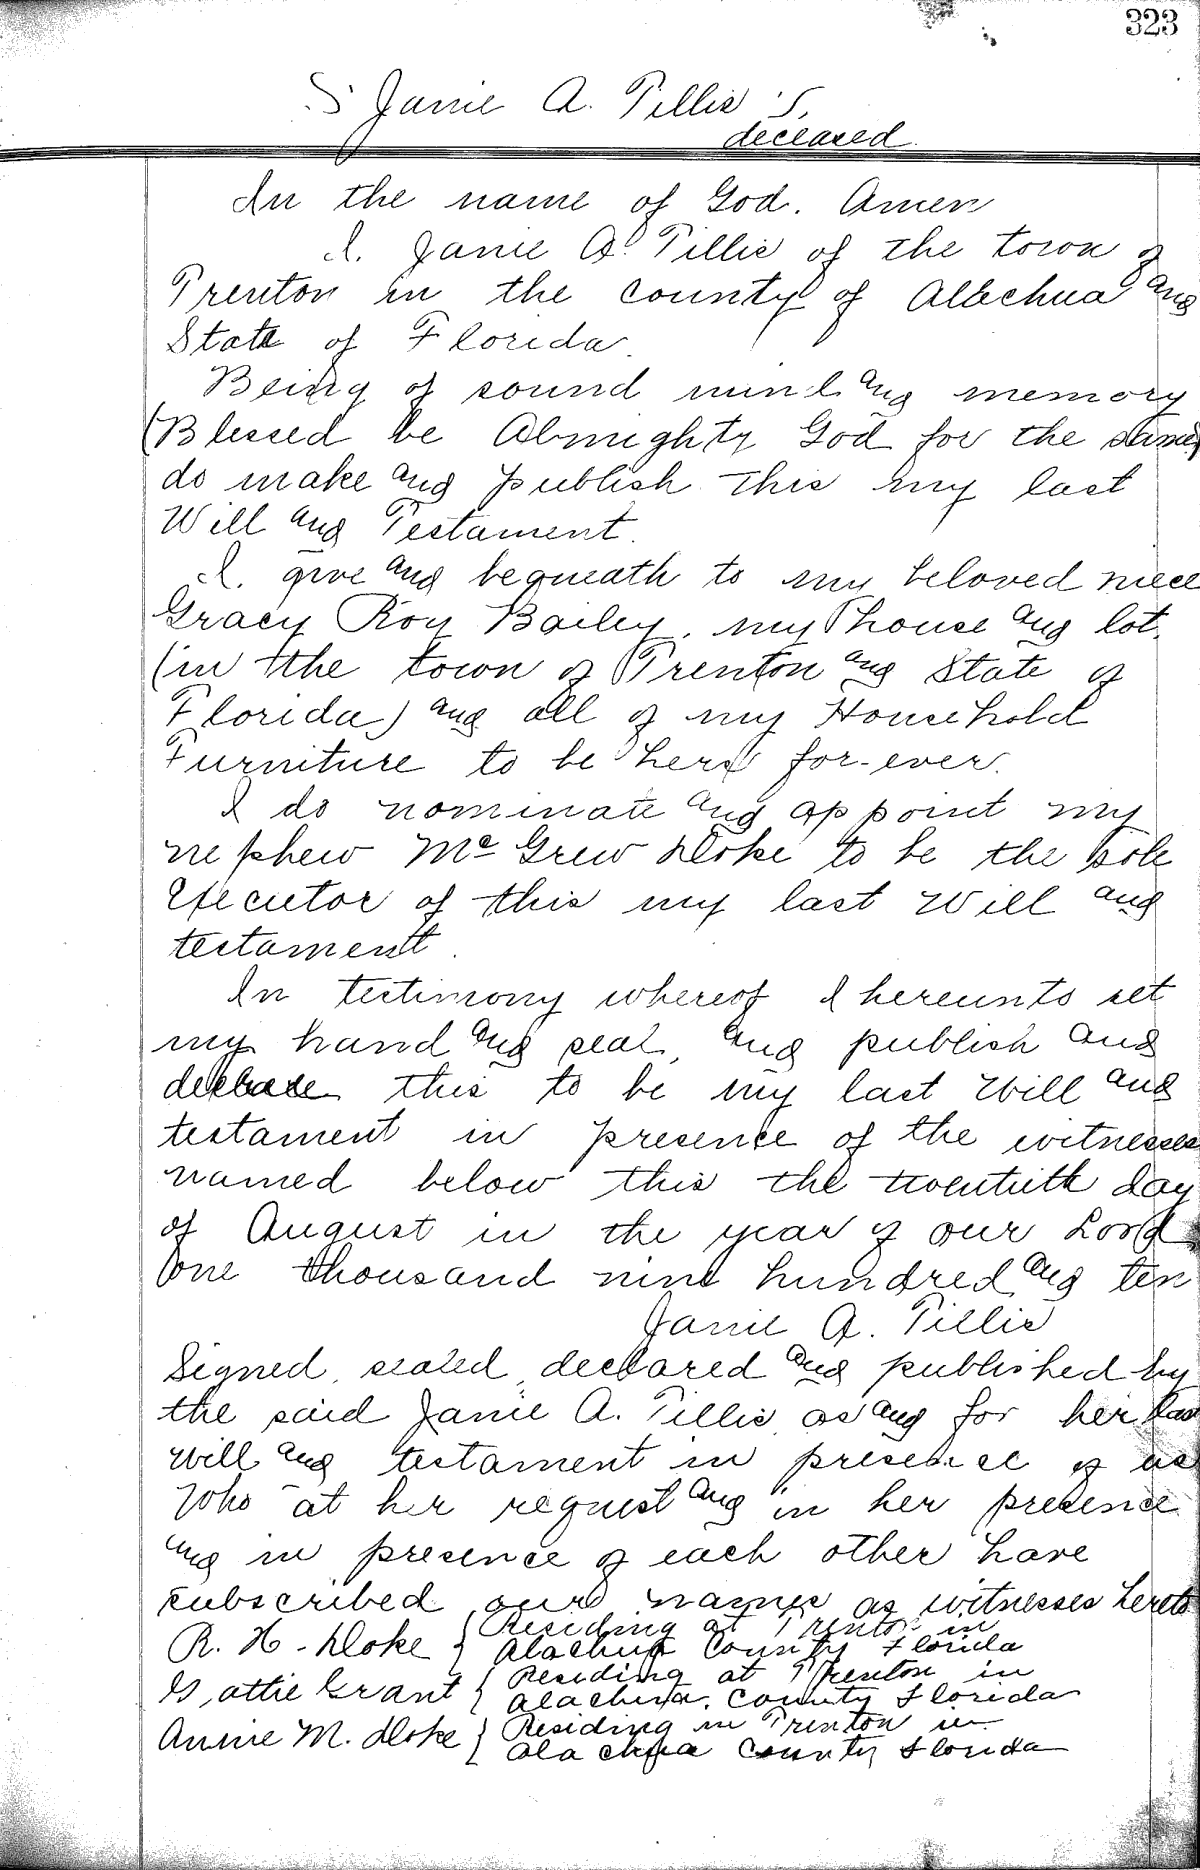 323
Janie A. Tillis
deceased
In the name of God. Amen
I. Janie A. Tillis of the town of
Trenton in the county of Alachua and
State of Florida.
Being of sound mind and memory
(Blessed be Almighty God for the same)
do make and publish this my last
Will and Testament.
I. give and bequeath to my beloved niece
Gracy Roy Bailey, my house and lot,
(in the town of Trenton and State of
Florida) and all of my Household
Furniture to be hers for-ever.
I do nominate and appoint my
nephew Mc Grew Doke to be the sole
Executor of this my last Will and
testament.
In testimony whereof I hereunto set
my hand and seal, and publish and
declare this to be my last Will and
testament in presence of the witnesses
named below this the twentieth day
of August in the year of our Lord
One thousand nine hundred and ten
Janie A. Tillis
Signed, sealed, declared and published by
the said Janie A. Tillis as and for her last
will and testament in presence of us
Who at her request and in her presence
and in presence of each other have
subscribed our names as witnesses hereto
R. H. Doke } Residing at Trenton in
Alachua County Florida
attie Grant { Residing at Trenton in
Alachua, County Florida
Annie M. Doke } Residing in Trenton in
Alachua County Florida